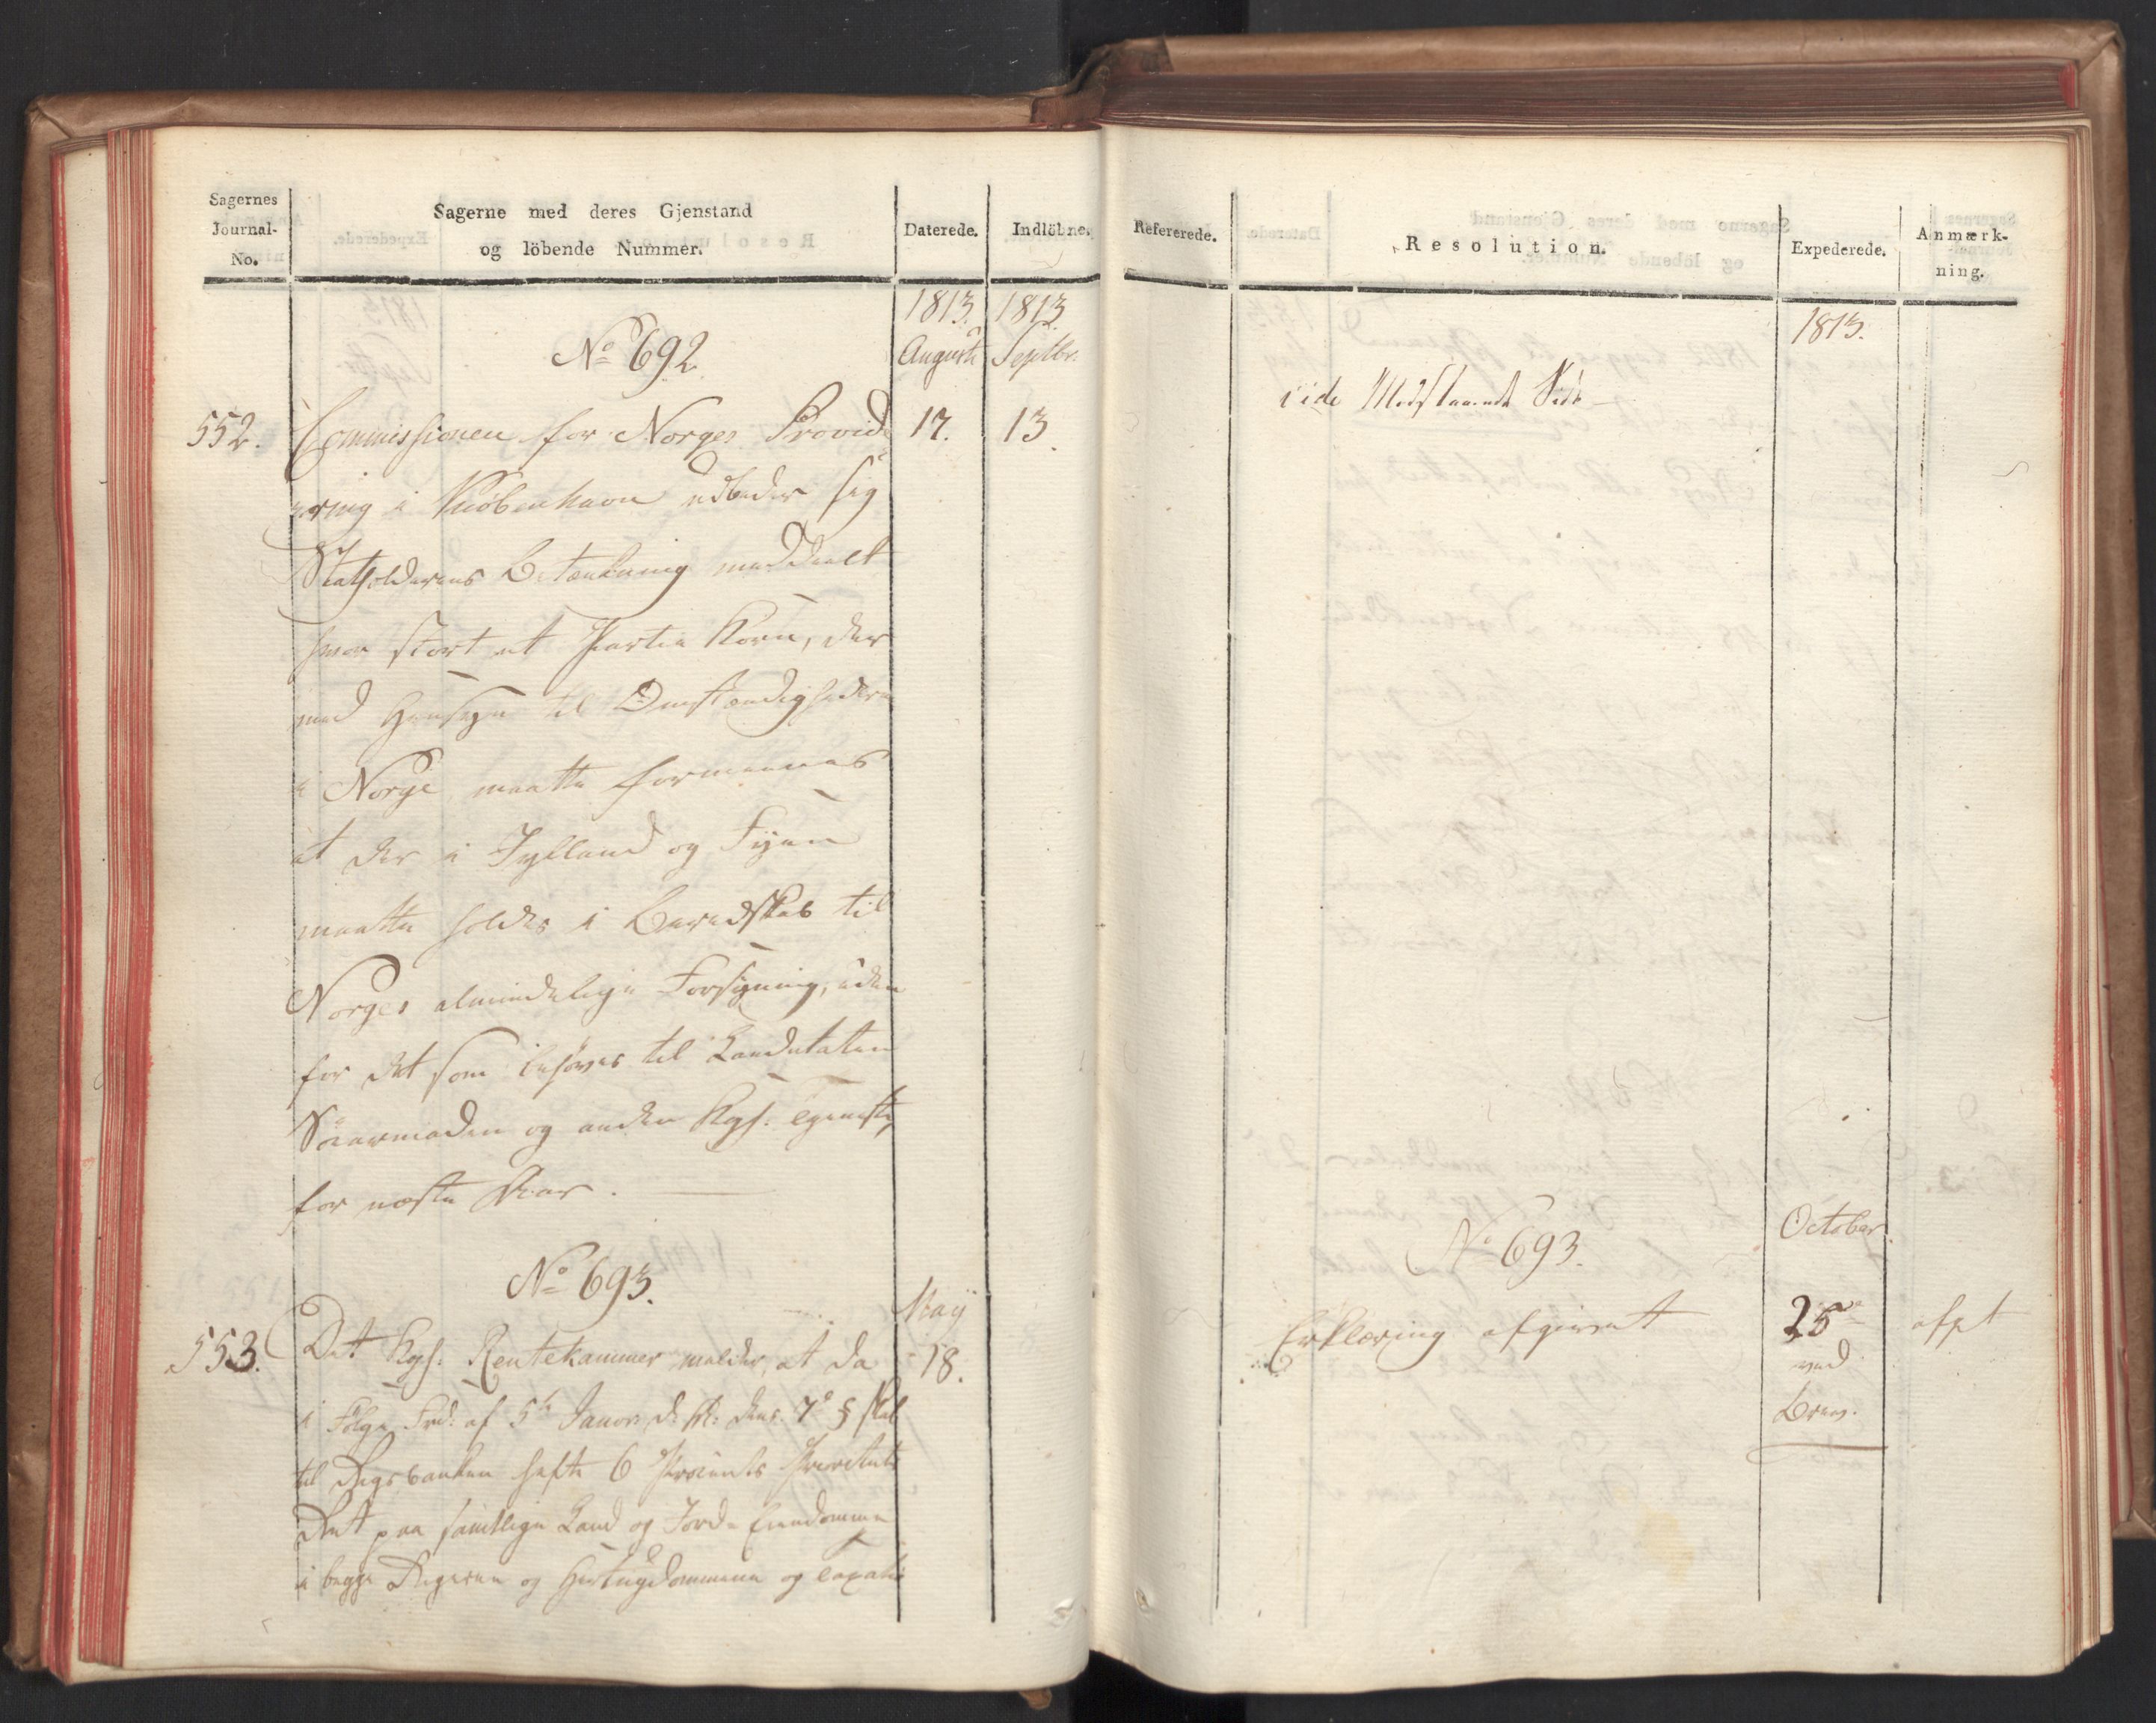 Sagernes
Journal-
No.
Sagerne med deres Gjenstand
og löbende Nummer.
Daterede.
Indlöbne.
1813. 1813.
No 692.
Augusti Septbr.
552. Commissionen for Norges Provide
17. 13.
ring i Kiöbenhavn udbeder sig
Statholderens Betænkning meddeelt
hvor stort et Partie Korn, der
med Hensyn til Omstændighederne
i Norge maatte formeenes
at der i Jylland og Fyen
maatte holdes i Beredskab til
Norges almindelige Forsyning, uden
for det som behöves til Landetaten
Söearmaden og anden Kgl: Tjeneste,
for næste Aar.
No 693.
May
553. Det Kgl: Rentekammer melder, at da
18.
i Fölge Frd: af 5te Janvr: d: A: dens 7de § skal
til Rigsbanken hefte 6 Procents Prioritet
paa samtlige Land og Jorde Eiendomme
i begge Rigerne og Hertugdommene og
Refererede.
Resolution.
Expederede.
Anmærk-
ning.
1813.
vide Modstaaende Side
No 693.
October.
Erklæring afgivet
25de
afgt
ved
Brev.